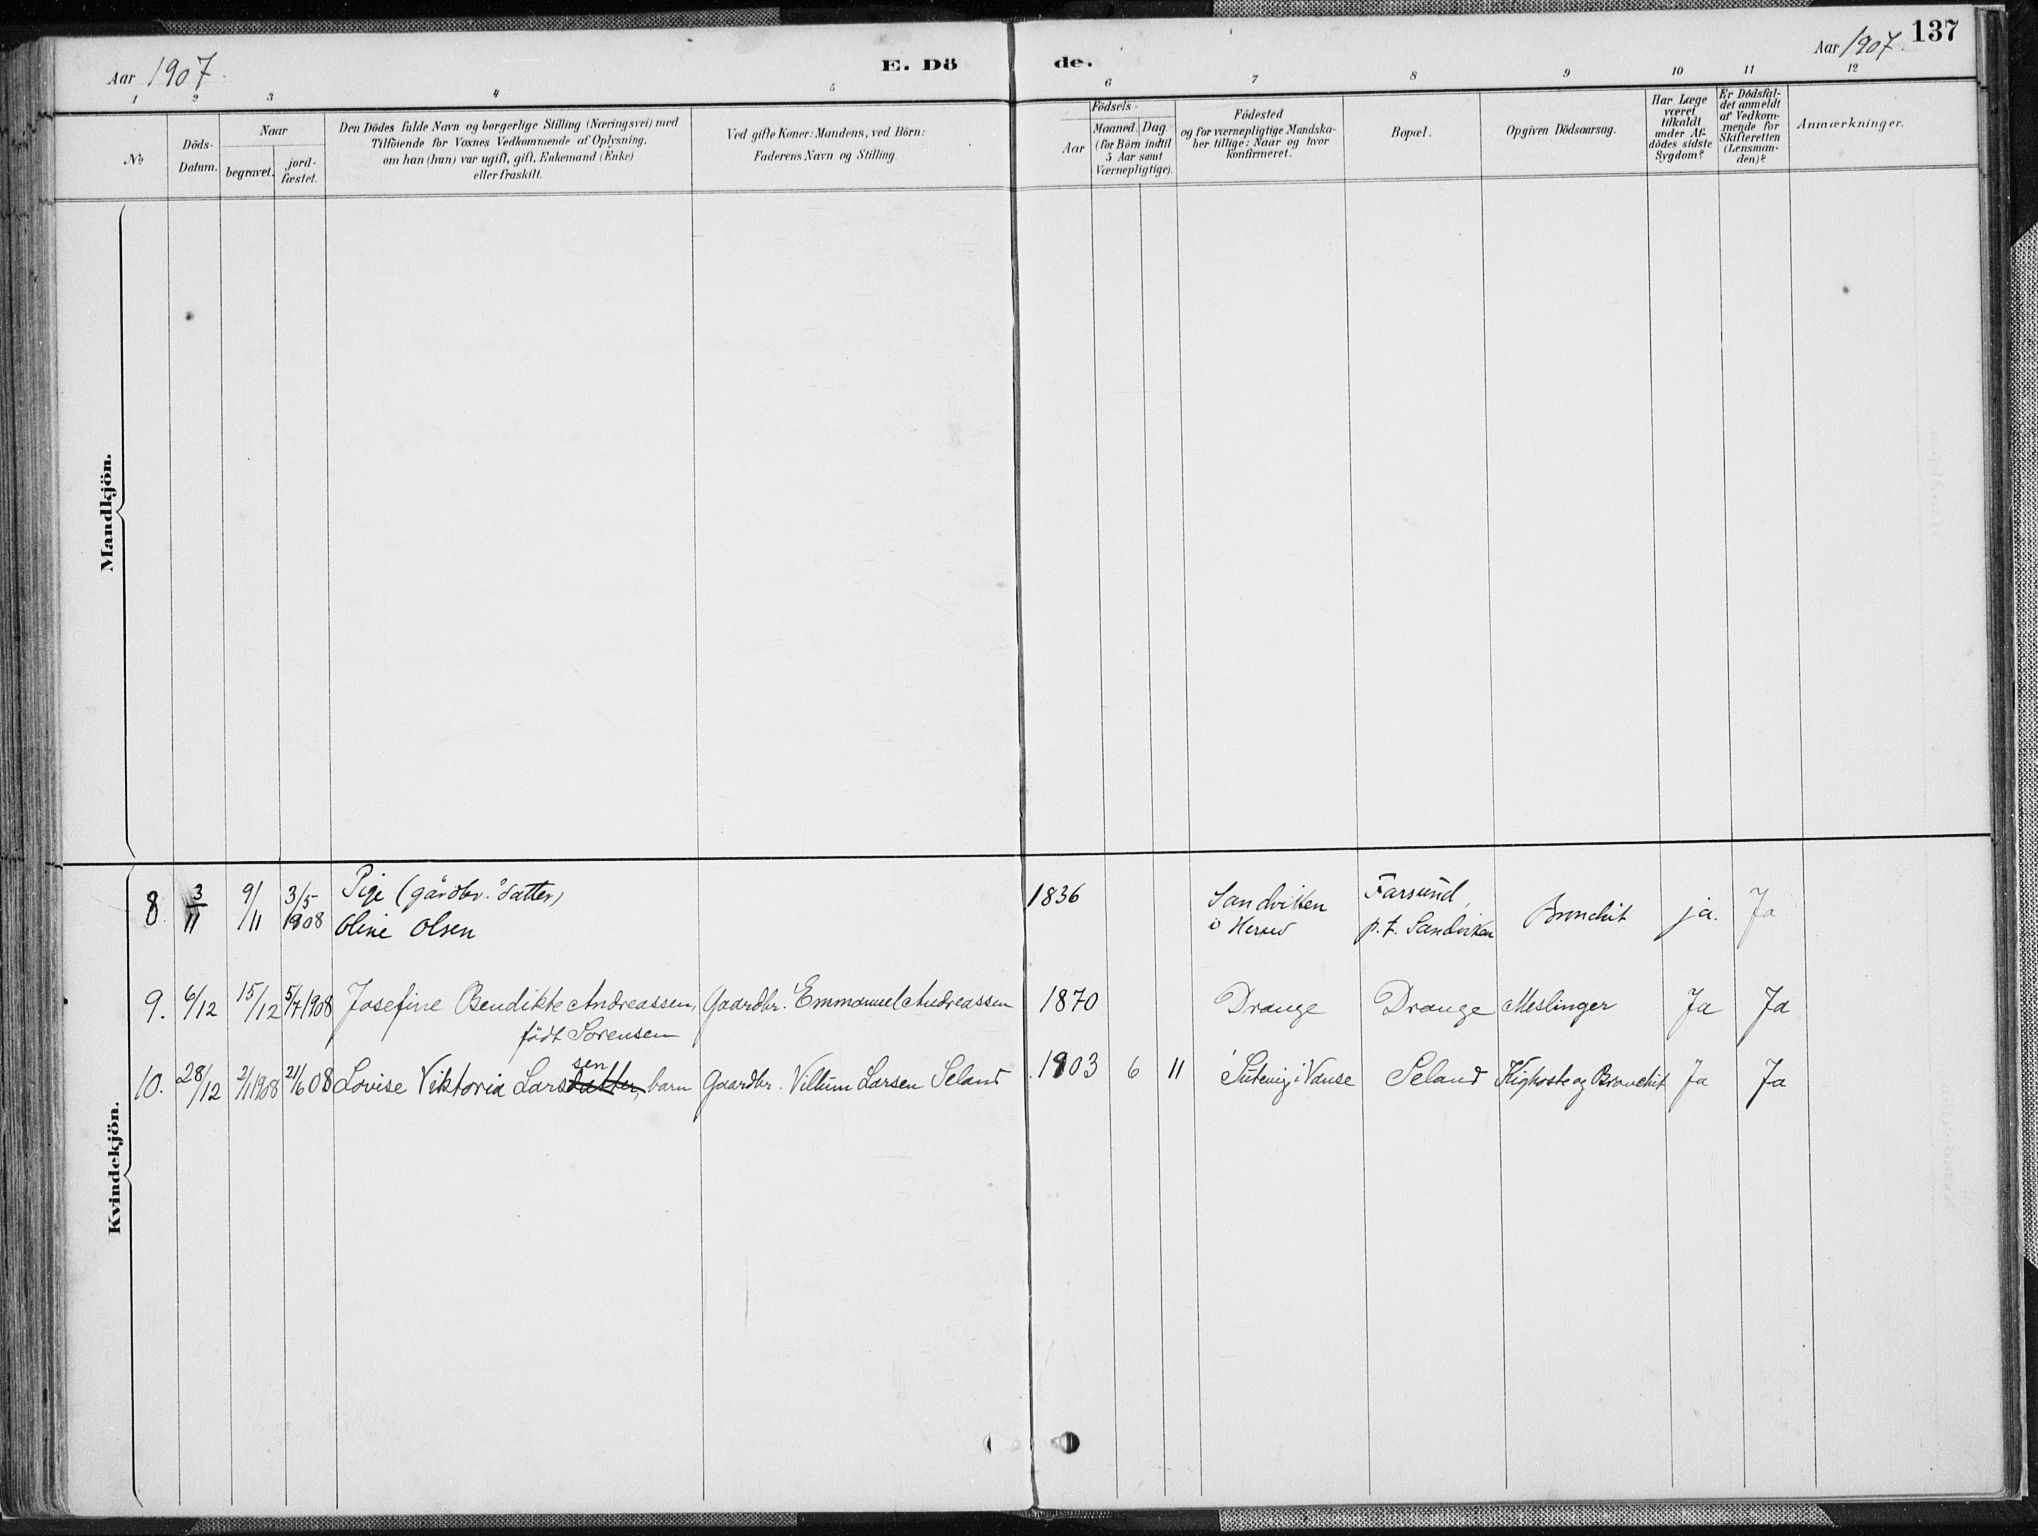 Aar 1907.
E. Dö
de.
Aar 1907.
137
1 2 3 4 5 6 7 8 9 10 11 12
No
Döds-Datum.
Naar
begravet.
jord-fæstet.
Den Dödes fulde Navn og borgerlige Stilling (Næringsvei) med
Tilföiende for Voxnes Vedkommende af Oplysning,
om han (hun) var ugift, gift, Enkemand (Enke)
eller fraskilt.
Ved gifte Koner: Mandens, ved Börn:
Faderens Navn og Stilling.
Födsels-
Aar
Maaned. Dag.
(for Börn indtil
5 Aar samt
Værnepligtige).
Födested
og for værnepligtige Mandska-
ber tillige: Naar og hvor
konfirmeret.
Bopæl.
Opgiven Dödsaarsag.
Har Læge
været
tilkaldt
under Af-
dödes sidste
Sygdom?
Er Dödsfal-
det anmeldt
af Vedkom-
mende for
Skifteretten
(Lensman-
den)?
Anmærkninger.
Mandkjön.
Kvindekjön.
8. 3/11 9/11 3/5 1908 Pige (gårdbr. datter)
Oline Olsen
1836 Sandviken
i Herred
Farsund,
p.t. Sandviken
Bronchit ja. Ja
9. 6/12 15/12 5/7 1908 Josefine Bendikte Andreassen, Gaardbr. Emmanuel Andreassen 1870 Drange Drange Meslinger Ja Ja
födt Sörensen
sen
10. 28/12 2/1 1908 21/6 08 Lovise Viktoria Larsdatter, barn Gaardbr. Villum Larsen Seland 1903 6 11 i Vanse Seland Kighoste og Bronchit Ja Ja